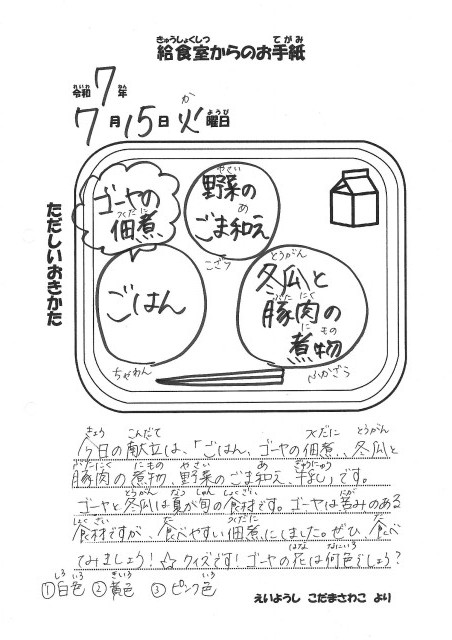 きゅうしょくしつ てがみ
給食室からのお手紙
れいわ ねん
令和7年
か ようび
7月15日火曜日
ただしいおきかた
ゴーヤの
つくだに
佃煮
やさい
野菜の
あ
ごま和え
こざら
ごはん
ちゃわん
とうがん
冬瓜と
ぶたにく
豚肉の
にもの
煮物
ふかざら
きょう こんだて つくだに とうがん
今日の献立は、「ごはん、ゴーヤの佃煮、冬瓜と
ぶたにく にもの やさい あ ぎゅうにゅう
豚肉の煮物、野菜のごま和え、牛乳」です。
とうがん なつ しゅん しょくざい にが
ゴーヤと冬瓜は夏が旬の食材です。ゴーヤは苦みのある
しょくざい た つくだに た
食材ですが、食べやすい佃煮にしました。ぜひ、食べ
はな なにいろ
てみましょう!☆クイズです!ゴーヤの花は何色でしょう?
しろいろ きいろ いろ
①白色 ②黄色 ③ピンク色
えいようし こだまさわこ より